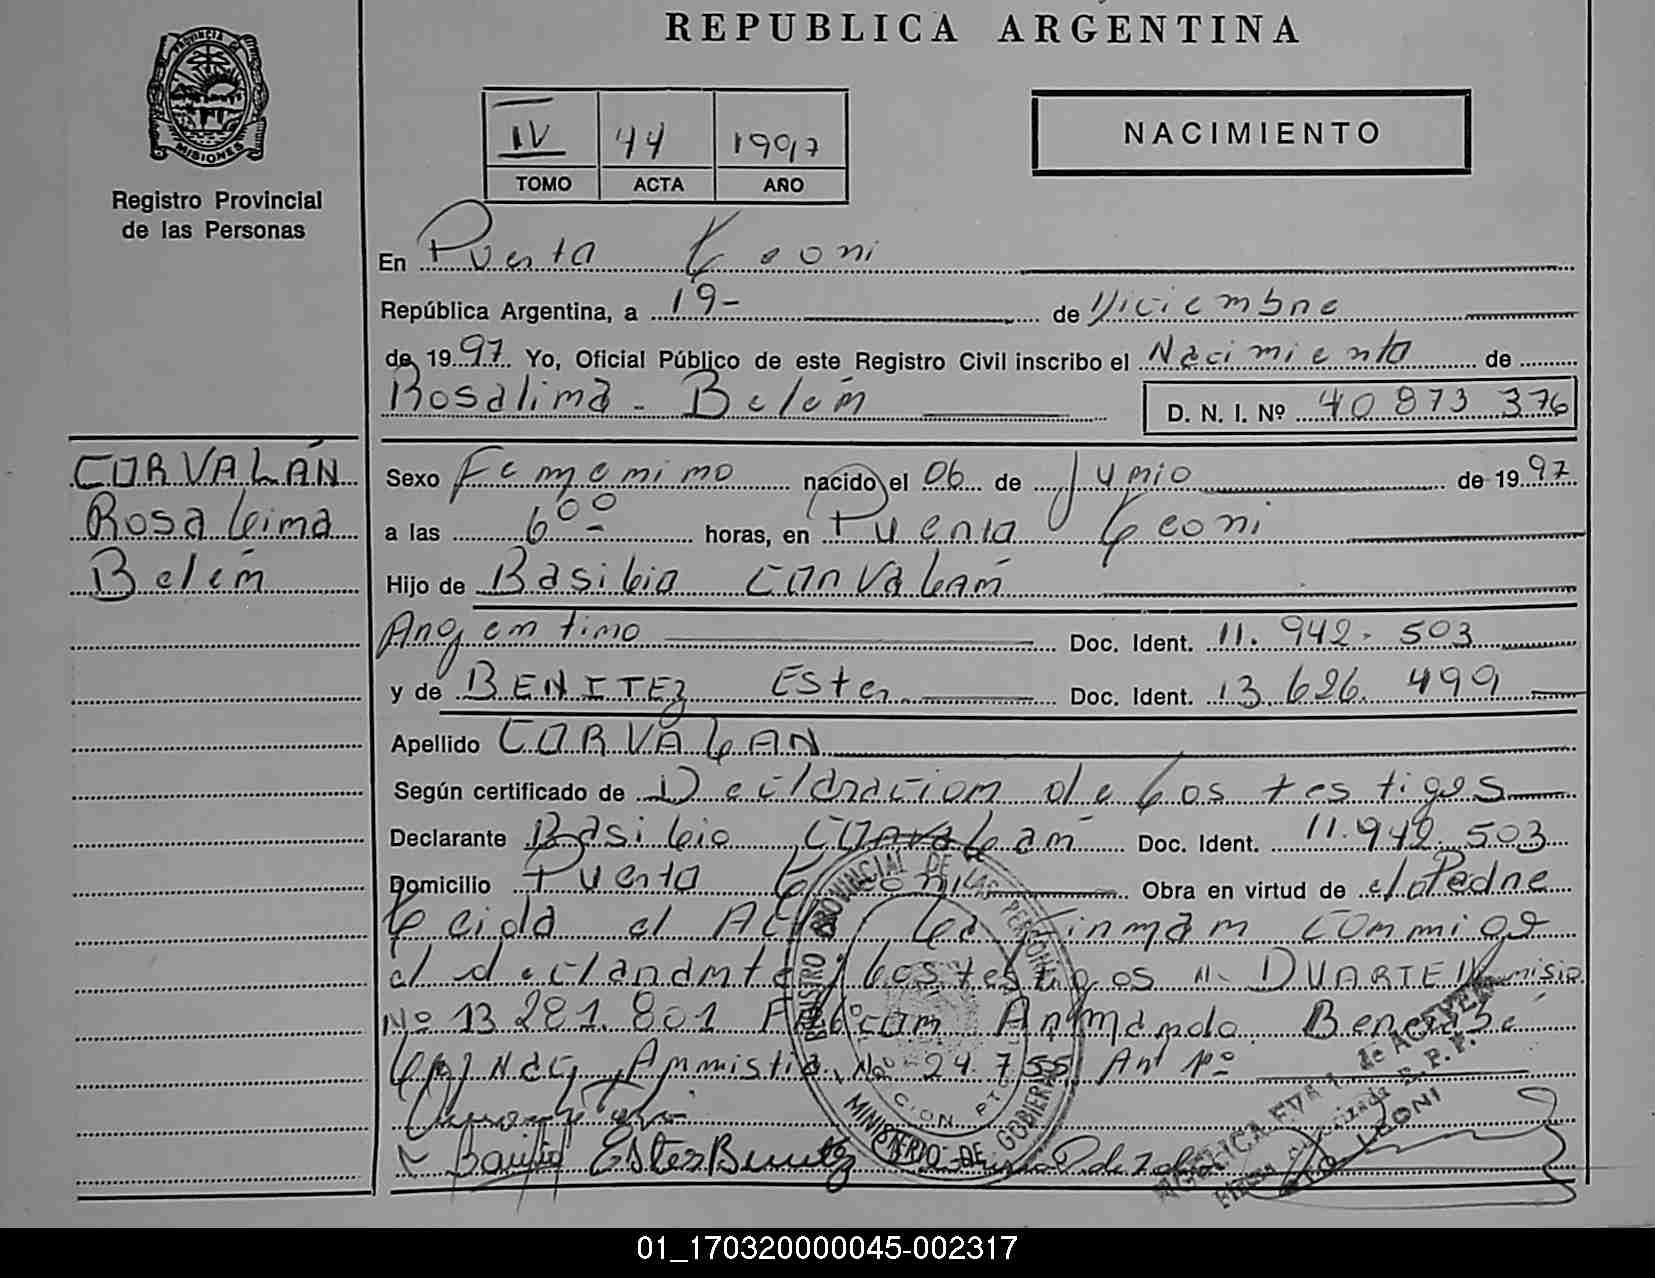 REPUBLICA ARGENTINA
PROVINCIA DE
MISIONES
Registro Provincial
de las Personas
IV 44 1997
TOMO ACTA AÑO
NACIMIENTO
En Puerto Leoni
República Argentina, a 19- de Diciembre
de 1997 Yo, Oficial Público de este Registro Civil inscribo el Nacimiento de
Rosalima - Belén D. N. I. Nº 40 873 376
CORVALÁN
Rosa Leima
Belén
Sexo Femenino nacido el 06 de Junio de 1997
a las 6 00 horas, en Puerto Leoni
Hijo de Basilio CORVALÁN
Argentino Doc. Ident. 11. 942. 503
y de BENITEZ Ester Doc. Ident. 13.626. 499
Apellido CORVALAN
Según certificado de Declaracion de Los testigos
Declarante Basilio CORVALAN Doc. Ident. 11.942.503
Domicilio Puerto Leoni Obra en virtud de el Padre
Leida el Acta La Firman Conmigo
el declarante y Los testigos DUARTE
Nº 13 281. 801 Armando
Ley Nac, Amnistia Nº 24.755 Art 1º
Ester Benitez
REGISTRO PROVINCIAL DE LAS PERSONAS
MINISTERIO DE GOBIERNO
LEONI
01_170320000045-002317